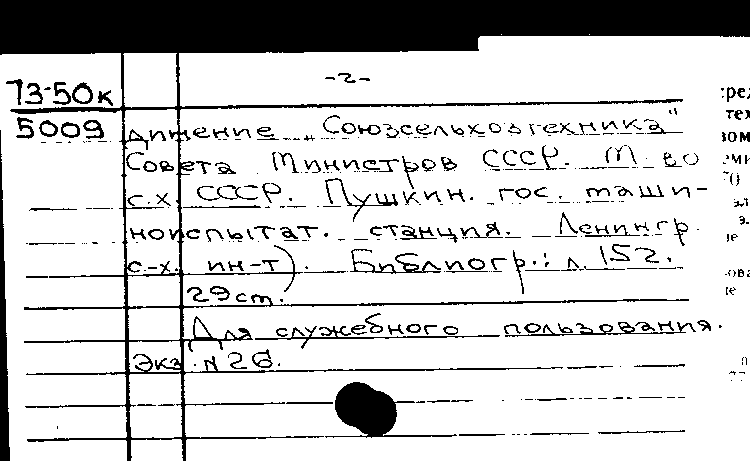 -2-
73-50к
5009
динение „Союзсельхозтехника"
Совета Министров СССР. М-во
с.х. СССР. Пушкин. гос. маши-
ноиспытат. станция. Ленингр.
с-х. ин-т). Библиогр.: л. 152.
29 см.
Для служебного пользования.
Экз. N 26.